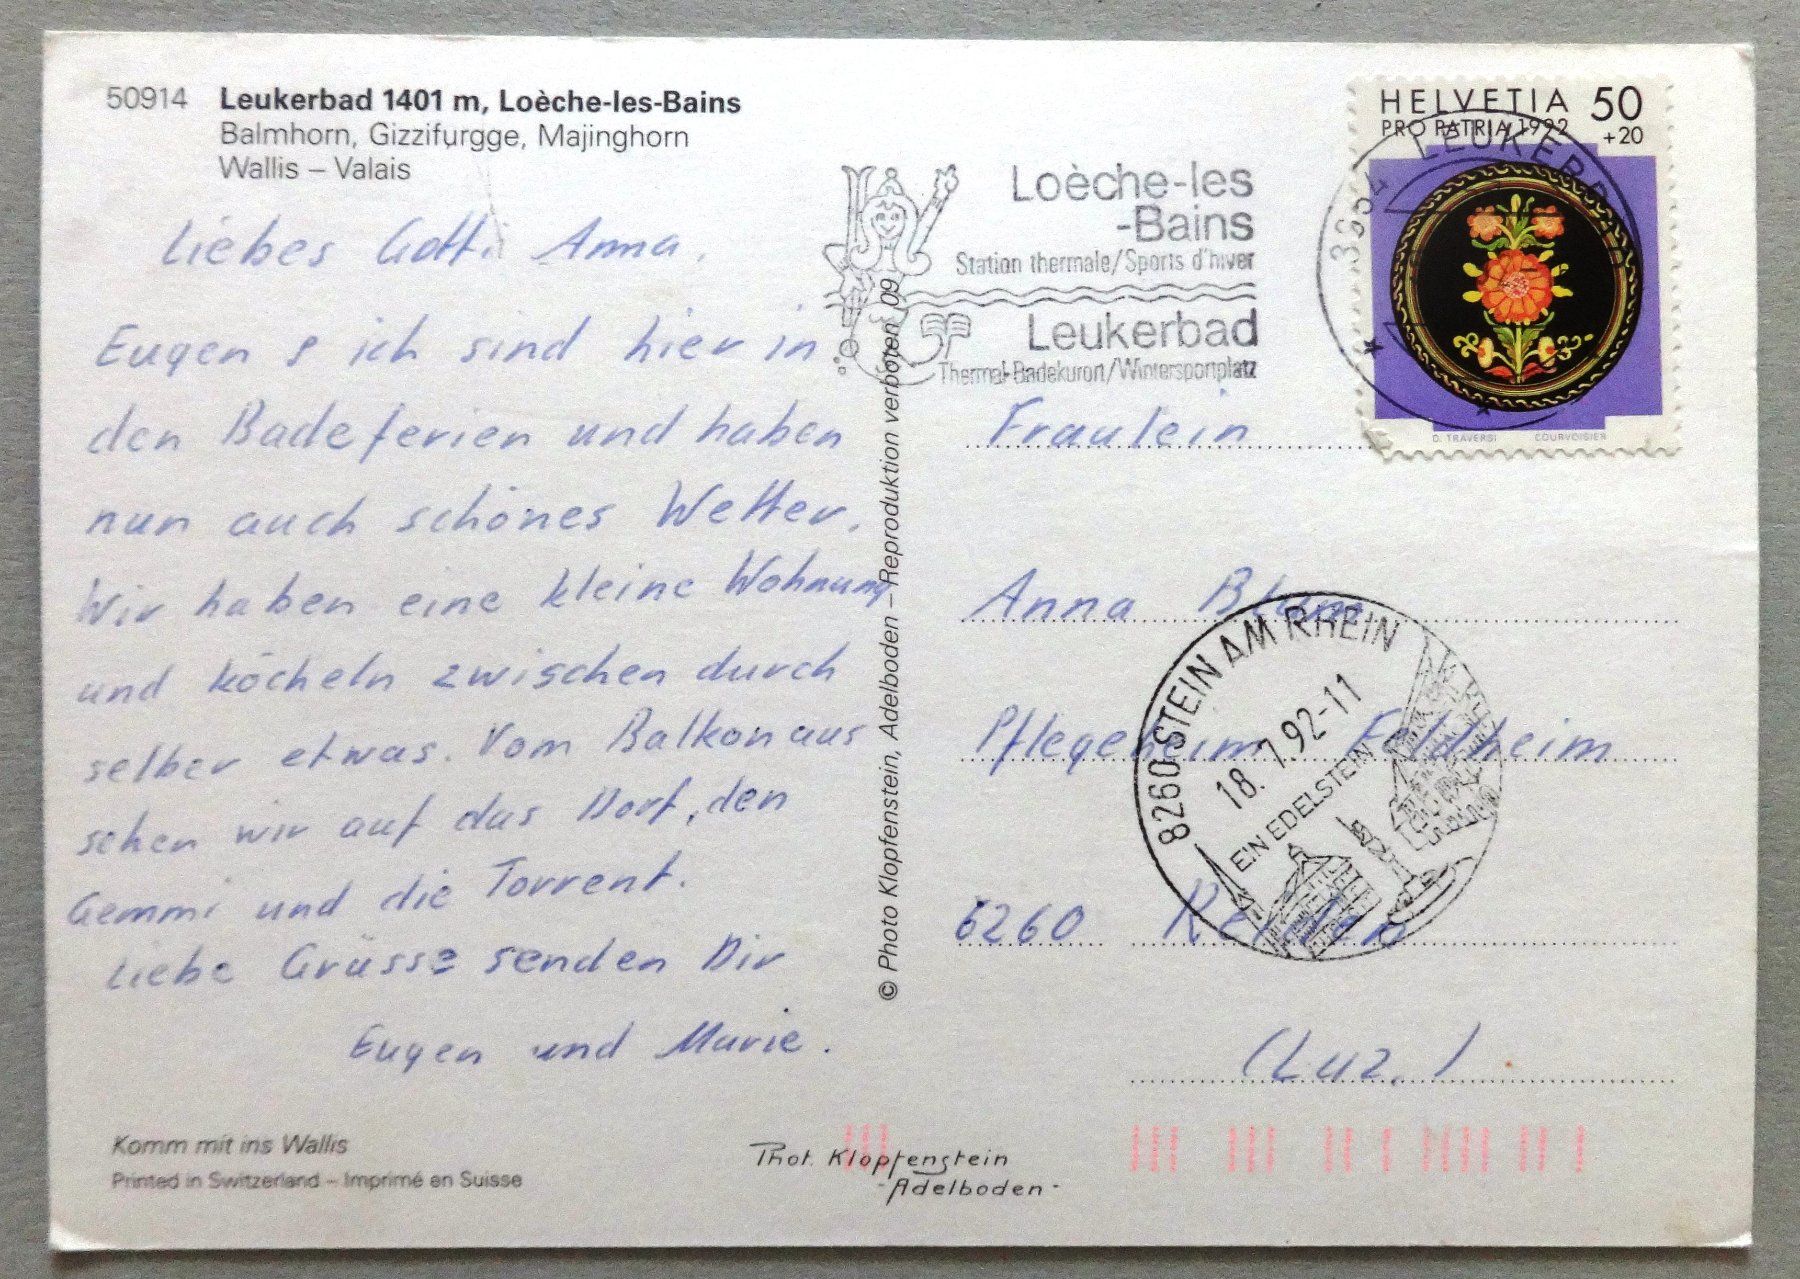 50914 Leukerbad 1401 m, Loèche-les-Bains
Balmhorn, Gizzifurgge, Majinghorn
Wallis – Valais
Liebes Gotti Anna,
Eugen & ich sind hier in
den Badeferien und haben
nun auch schönes Wetter.
Wir haben eine kleine Wohnung
und köcheln zwischen durch
selber etwas. Vom Balkon aus
sehen wir auf das Dorf, den
Gemmi und die Torrent.
Liebe Grüsse senden Dir
Eugen und Marie.
Komm mit ins Wallis
Printed in Switzerland – Imprimé en Suisse
© Photo Klopfenstein, Adelboden – Reproduktion verboten 09
Phot. Klopfenstein
-Adelboden-
Loèche-les
-Bains
Station thermale/Sports d'hiver
Leukerbad
Thermal-Badekurort/Wintersportplatz
HELVETIA 50
PRO PATRIA 1992 +20
3954 LEUKERBAD
D. TRAVERSI COURVOISIER
Fraulein
Anna Blum
Pflegeheim Feldheim
6260 Reiden
(Luz.)
8260 STEIN AM RHEIN
18.7.92-11
EIN EDELSTEIN